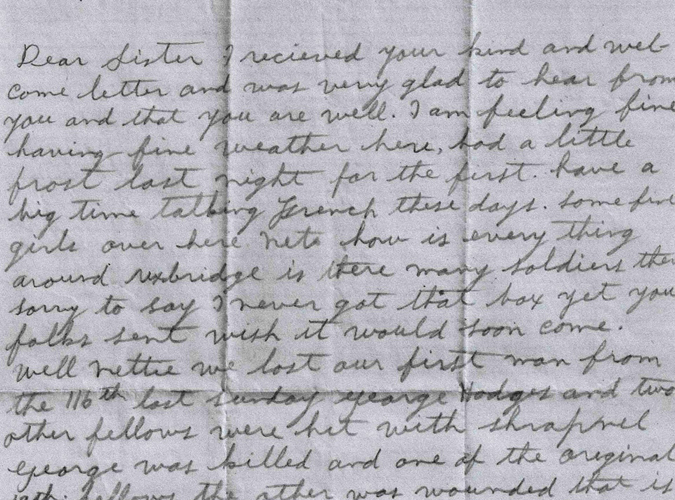 Dear Sister I recieved your kind and wel-
come letter and was very glad to hear from
you and that you are well. I am feeling fine
having fine weather here, had a little
frost last night for the first. have a
big time talking French these days. some fine
girls over here Nets how is every thing
around uxbridge is there many soldiers ther
sorry to say I never got that box yet you
folks sent wish it would soon come.
well nettie we lost our first man from
the 116th last sunday george Hodges and two
other fellows were hit with shrapnel
george was killed and one of the original
fellows the other was wounded that is